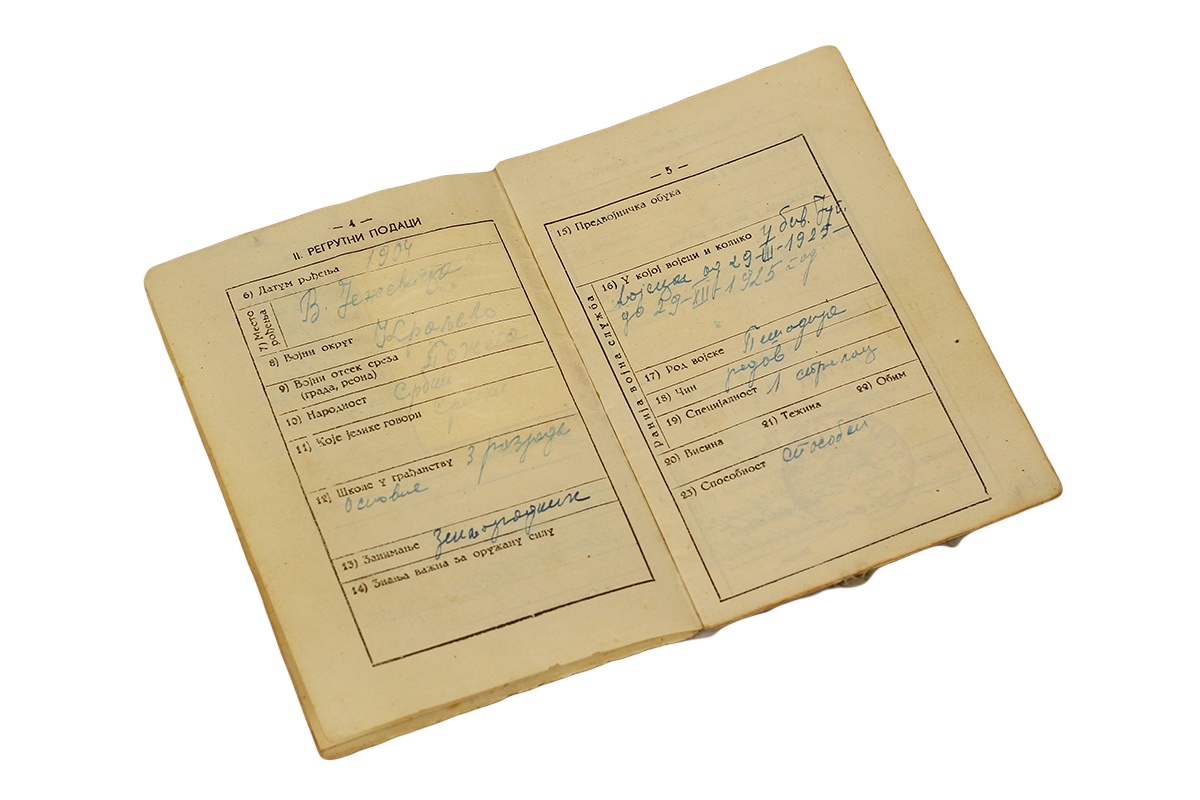 — 4 —
II. РЕГРУТНИ ПОДАЦИ
6) Датум рођења 1904
7) Место рођења В. Јежевица
8) Војни округ Краљево
9) Војни отсек среза Пожега
(града, реона)
10) Народност Србин
11) Које језике говори Српски
12) Школе у грађанству 3 разреда
основне
13) Занимање земљорадник
14) Знања важна за оружану силу
— 5 —
15) Предвојничка обука
Ранија војна служба
16) У којој војсци и колико У бив. Југ.
војсци од 29-III-192
до 29-III-1925 год.
17) Род војске Пешадија
18) Чин редов
19) Специјалност 1 стрелац
20) Висина 21) Тежина 22) Обим
23) Способност способан